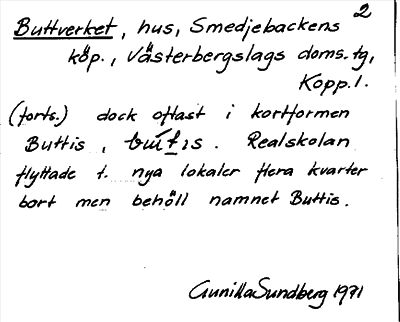 2
Buttverket, hus, Smedjebackens
köp., Västerbergslags doms.tg,
Kopp.l.
(forts.) dock oftast i kortformen
Buttis, . Realskolan
flyttade t. nya lokaler flera kvarter
bort men behöll namnet Buttis.
Gunilla Sundberg 1971